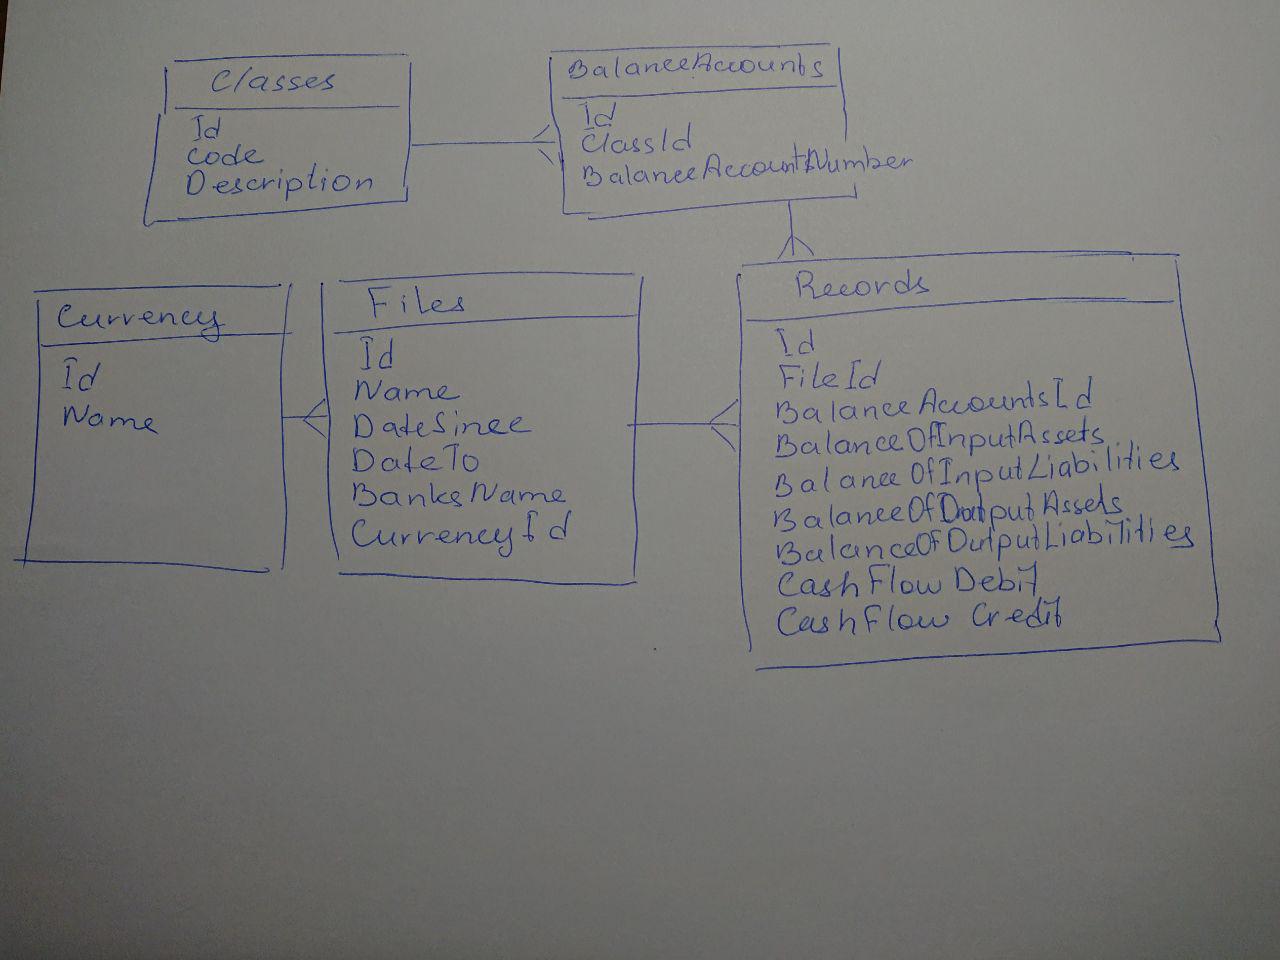 Classes
Id
Code
Description
BalanceAccounts
Id
ClassId
BalanceAccountsNumber
Currency
Id
Name
Files
Id
Name
DateSince
DateTo
BanksName
CurrencyId
Records
Id
FileId
BalanceAccountsId
BalanceOfInputAssets
BalanceOfInputLiabilities
BalanceOfOutputAssets
BalanceOfOutputLiabilities
CashFlowDebit
CashFlow Credit